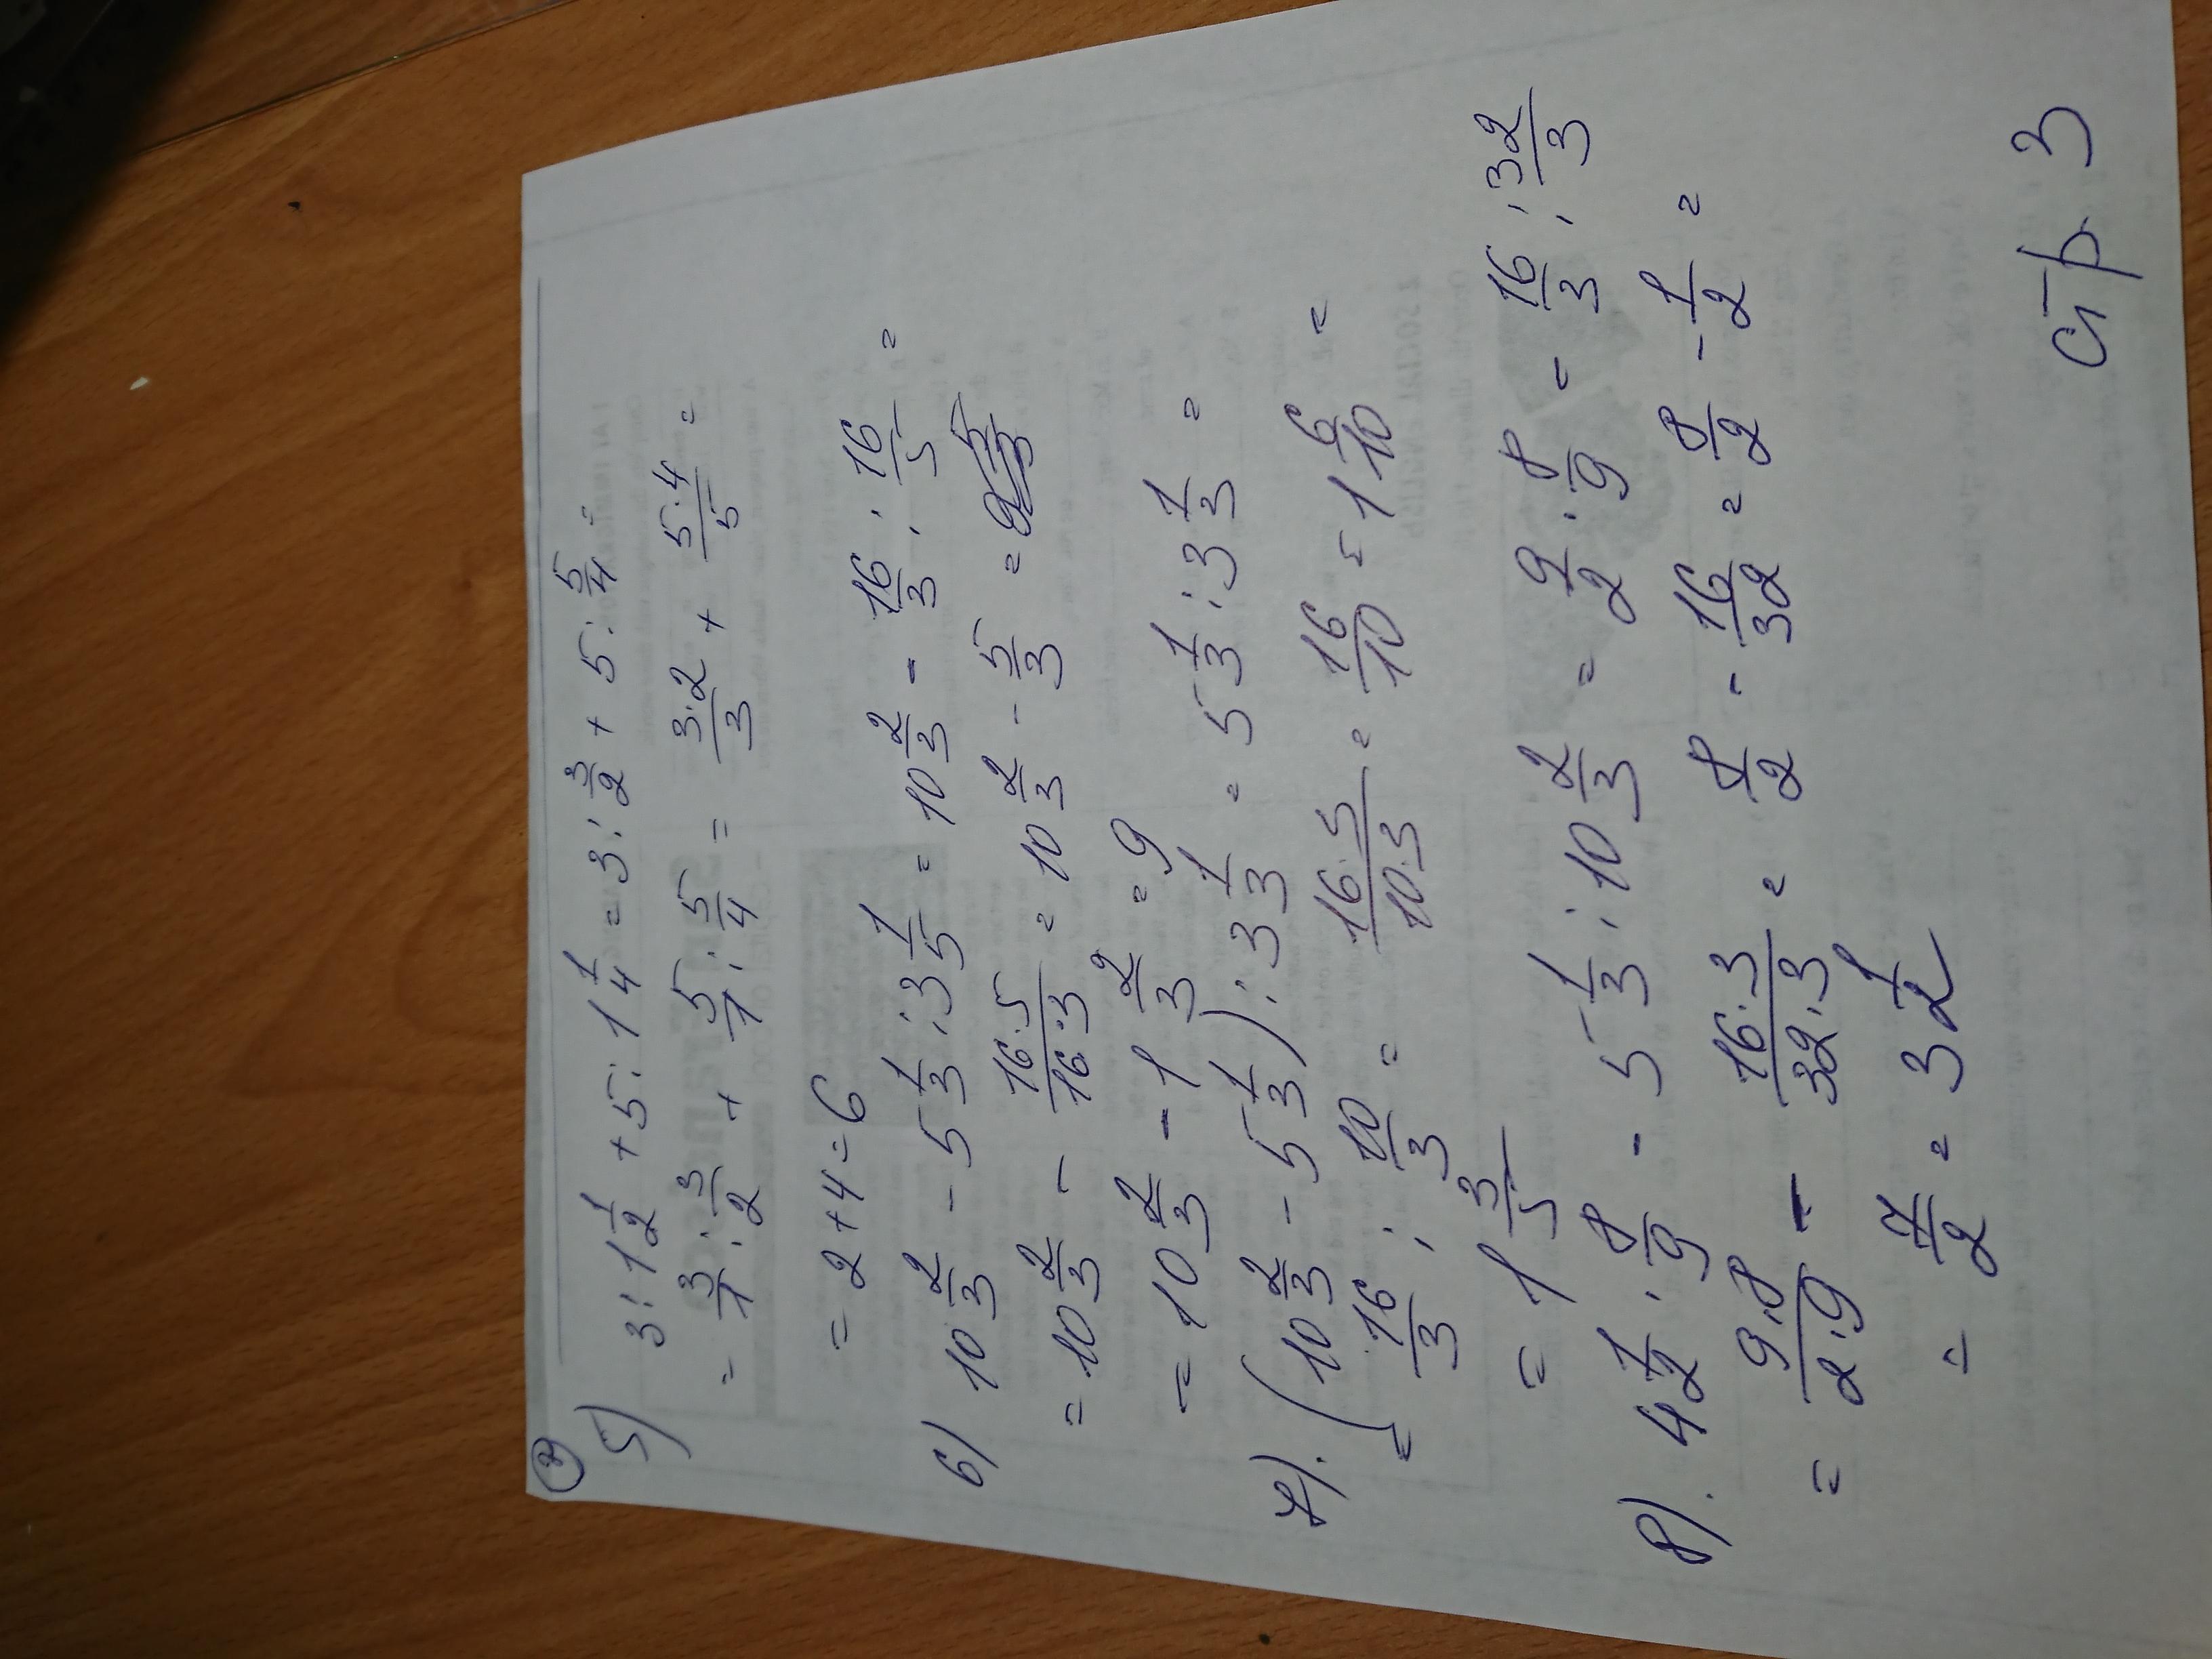 7
5) 3 : 1 1/2 + 5 : 1 1/4 = 3 : 3/2 + 5 : 5/4 =
= 3/1 : 3/2 + 5/1 : 5/4 = 3·2/3 + 5·4/5 =
= 2 + 4 = 6
6) 10 2/3 - 5 1/3 : 3 1/5 = 10 2/3 - 16/3 : 16/5 =
= 10 2/3 - 16·5/16·3 = 10 2/3 - 5/3 =
= 10 2/3 - 1 2/3 = 9
7). (10 2/3 - 5 1/3) : 3 1/3 = 5 1/3 : 3 1/3 =
= 16/3 : 10/3 = 16·3/10·3 = 16/10 = 1 6/10 =
= 1 3/5
8). 4 1/2 · 8/9 - 5 1/3 : 10 2/3 = 9/2 · 8/9 - 16/3 : 32/3
= 9·8/2·9 - 16·3/32·3 = 8/2 - 16/32 = 8/2 - 1/2 =
= 7/2 = 3 1/2
стр 3